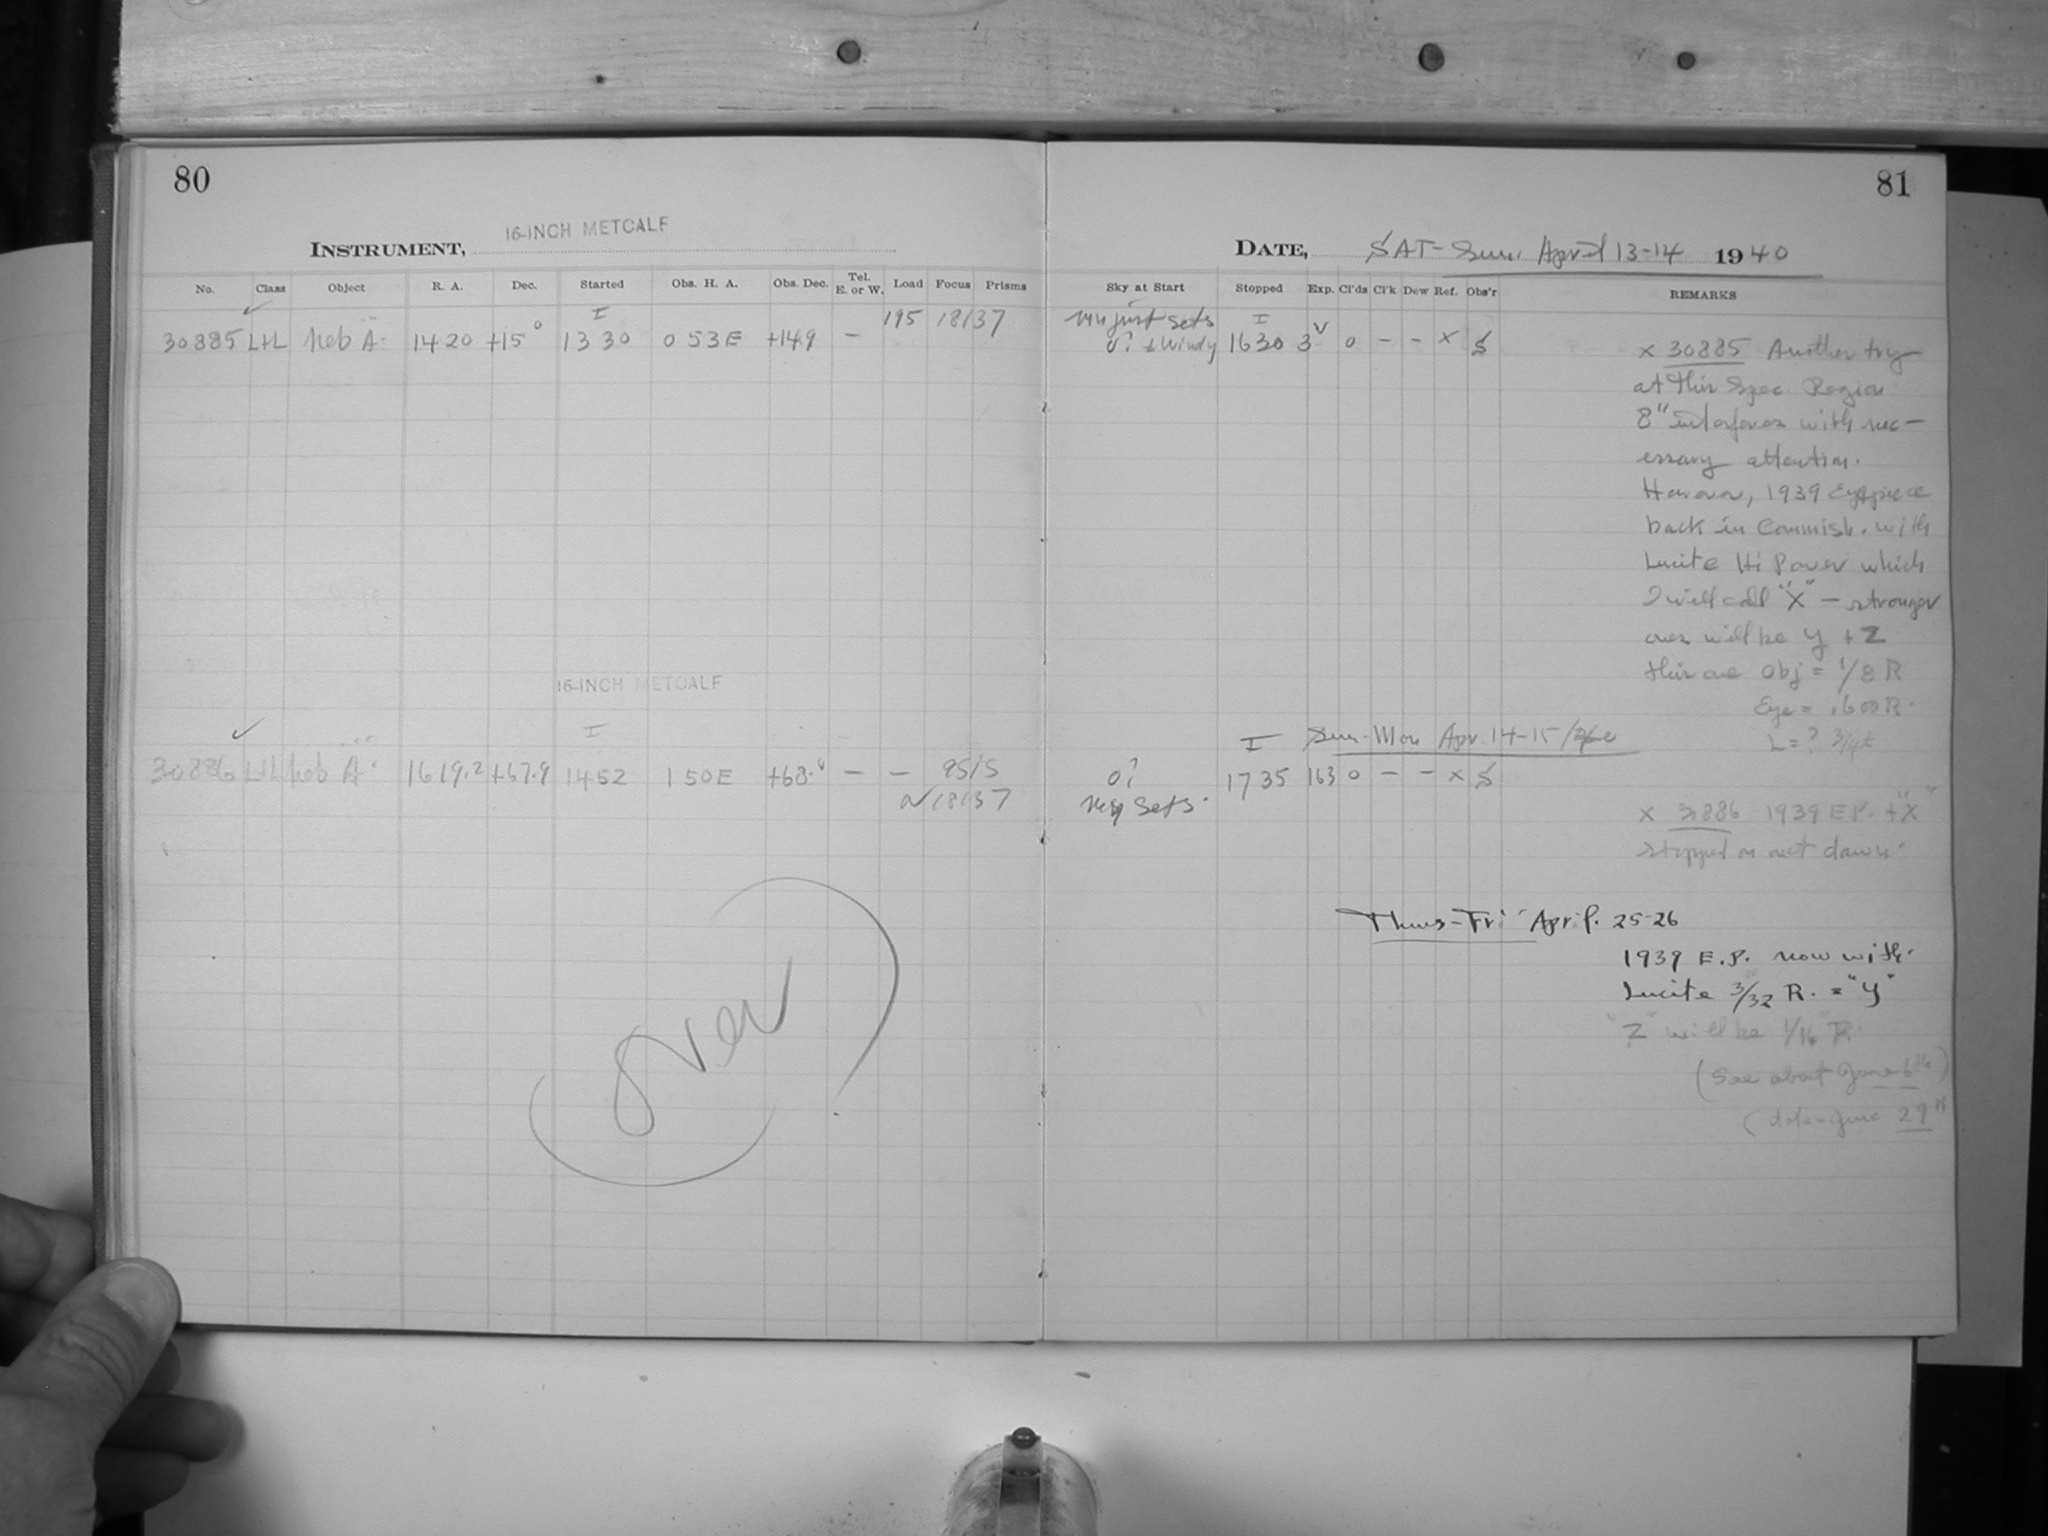 80
81
16-INCH METCALF
INSTRUMENT,
DATE, SAT-Sun. April 13-14 1940
No. Class Object R. A. Dec. Started Obs. H. A. Obs. Dec. Tel. E. or W. Load Focus Prisms
Sky at Start Stopped Exp. Cl'ds Cl'k Dew Ref. Obs'r REMARKS
I 195 18137
just sets I
30885 L+L Neb A. 1420 +15° 1330 0 53E +149 —
0? + Windy 1630 3 0 - - x S
x 30885 Another try
at this Spec. Region
8" Interferes with nec-
essary attention.
However, 1939 Eyepiece
back in Commish. with
Lucite Hi Power which
I will call "X" — stronger
ones will be Y + Z
this one Obj = 1/8 R
Eye = .600 R.
L = ? 3/4±
16-INCH METCALF
I
I Sun-Mon Apr. 14-15
30886 L+L Neb A. 1619.2 +67.9 1452 1 50E +68.° — — 9515
18137
0? 1735 163 0 - - x S
sets.
x 30886 1939 E.P. + "X"
stopped dawn.
Thurs-Fri April. 25-26
1939 E.P. now with
Lucite 3/32 R. = "Y"
"Z" will be 1/16 R.
(See about June 6th)
( June 29th
Over